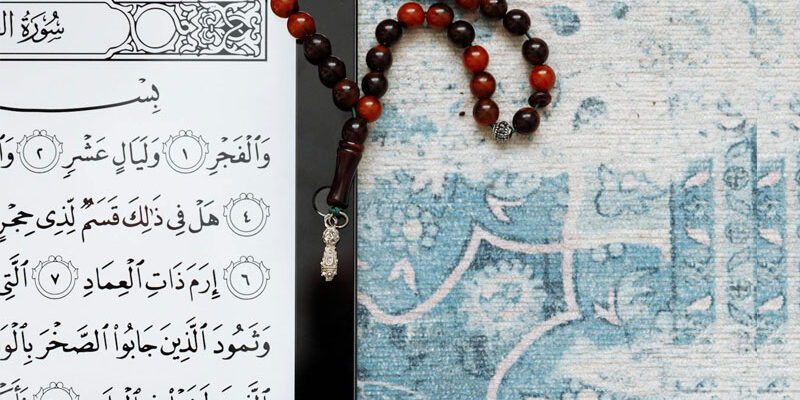 سُورَةُ
وَٱلْفَجْرِ ١ وَلَيَالٍ عَشْرٍ ٢
٤ هَلْ فِى ذَٰلِكَ قَسَمٌ لِّذِى حِجْرٍ
٦ إِرَمَ ذَاتِ ٱلْعِمَادِ ٧ ٱلَّتِى
وَثَمُودَ ٱلَّذِينَ جَابُوا۟ ٱلصَّخْرَ